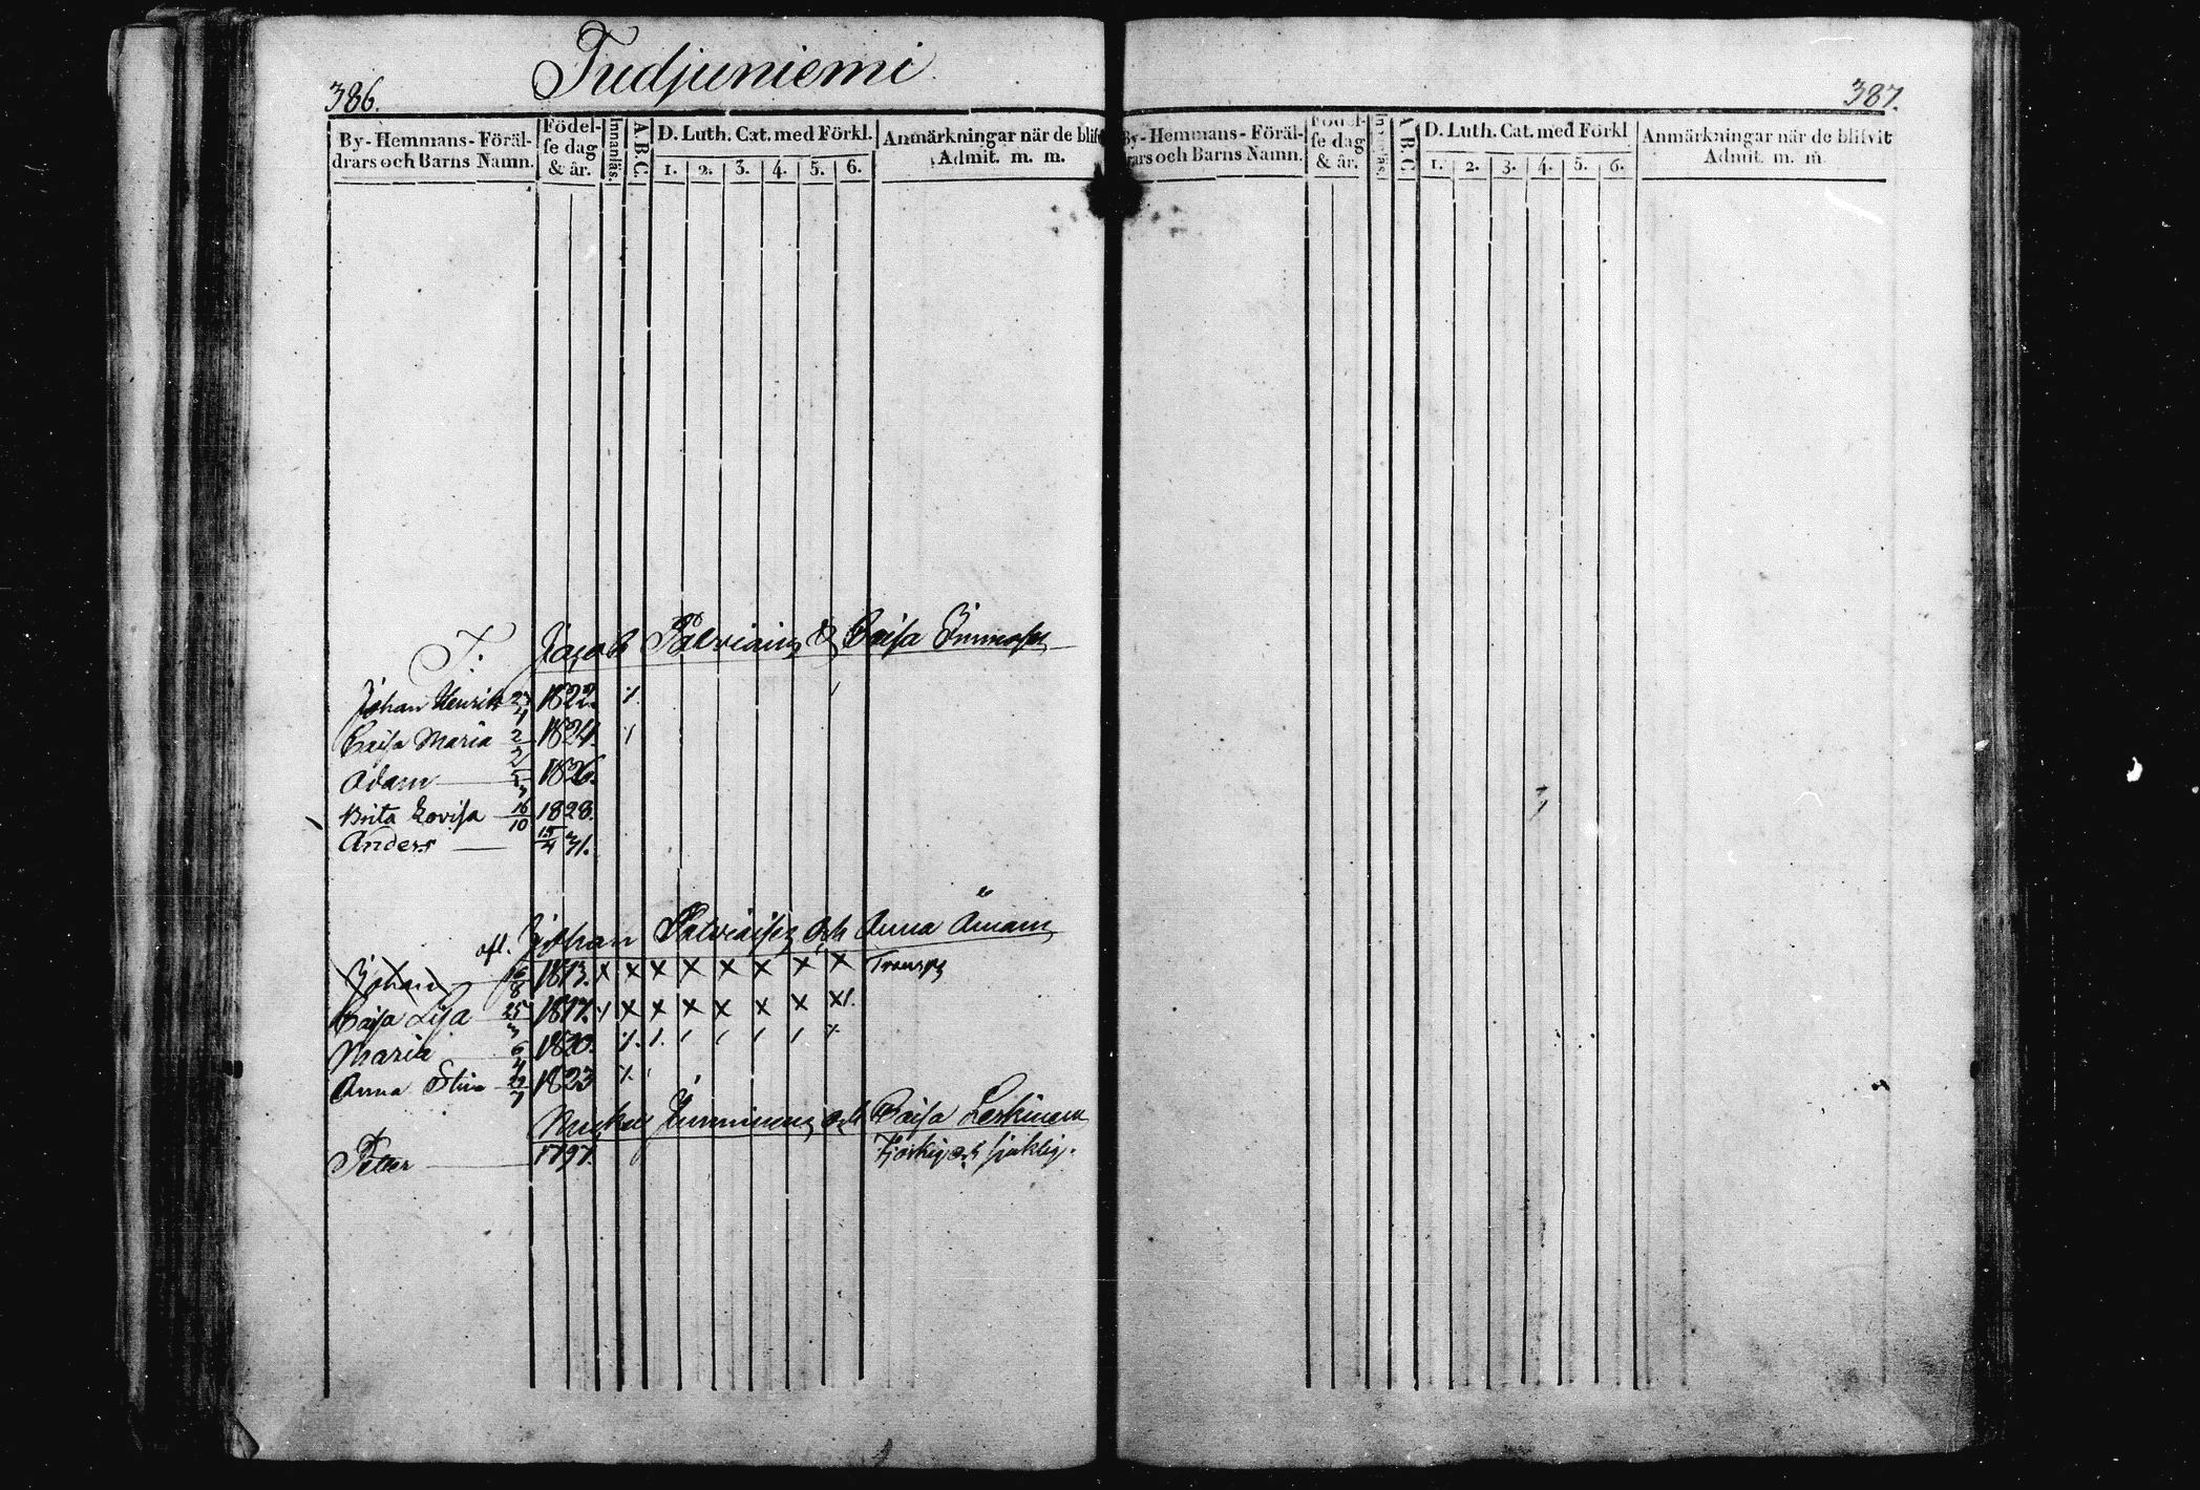 386.
Tudjuniemi
By-Hemmans-Föräl-
drars och Barns Namn.
Födel-
se dag
& år.
Innanläs.
A.B.C.
D. Luth. Cat. med Förkl.
1. 2. 3. 4. 5. 6.
Anmärkningar när de blif
Admit. m. m.
Jacob & Caisa
Johan Henrik 1822.
Caisa Maria 2 1824.
Adam 1826.
Brita Lovisa 16/10 1828.
Anders 15/4 31.
Johan och Anna
Johan 16/8 1813. x x x x x x x x Transp
Caisa Lisa 25 1817. x x x x x x
Maria 6 1820.
Anna Stina 1823
och Caisa Leskinen
Petter 1797. och sjuklig.
387.
By-Hemmans-Föräl-
drars och Barns Namn.
Födel-
se dag
& år.
Innanläs.
A.B.C.
D. Luth. Cat. med Förkl
1. 2. 3. 4. 5. 6.
Anmärkningar när de blifvit
Admit. m. m